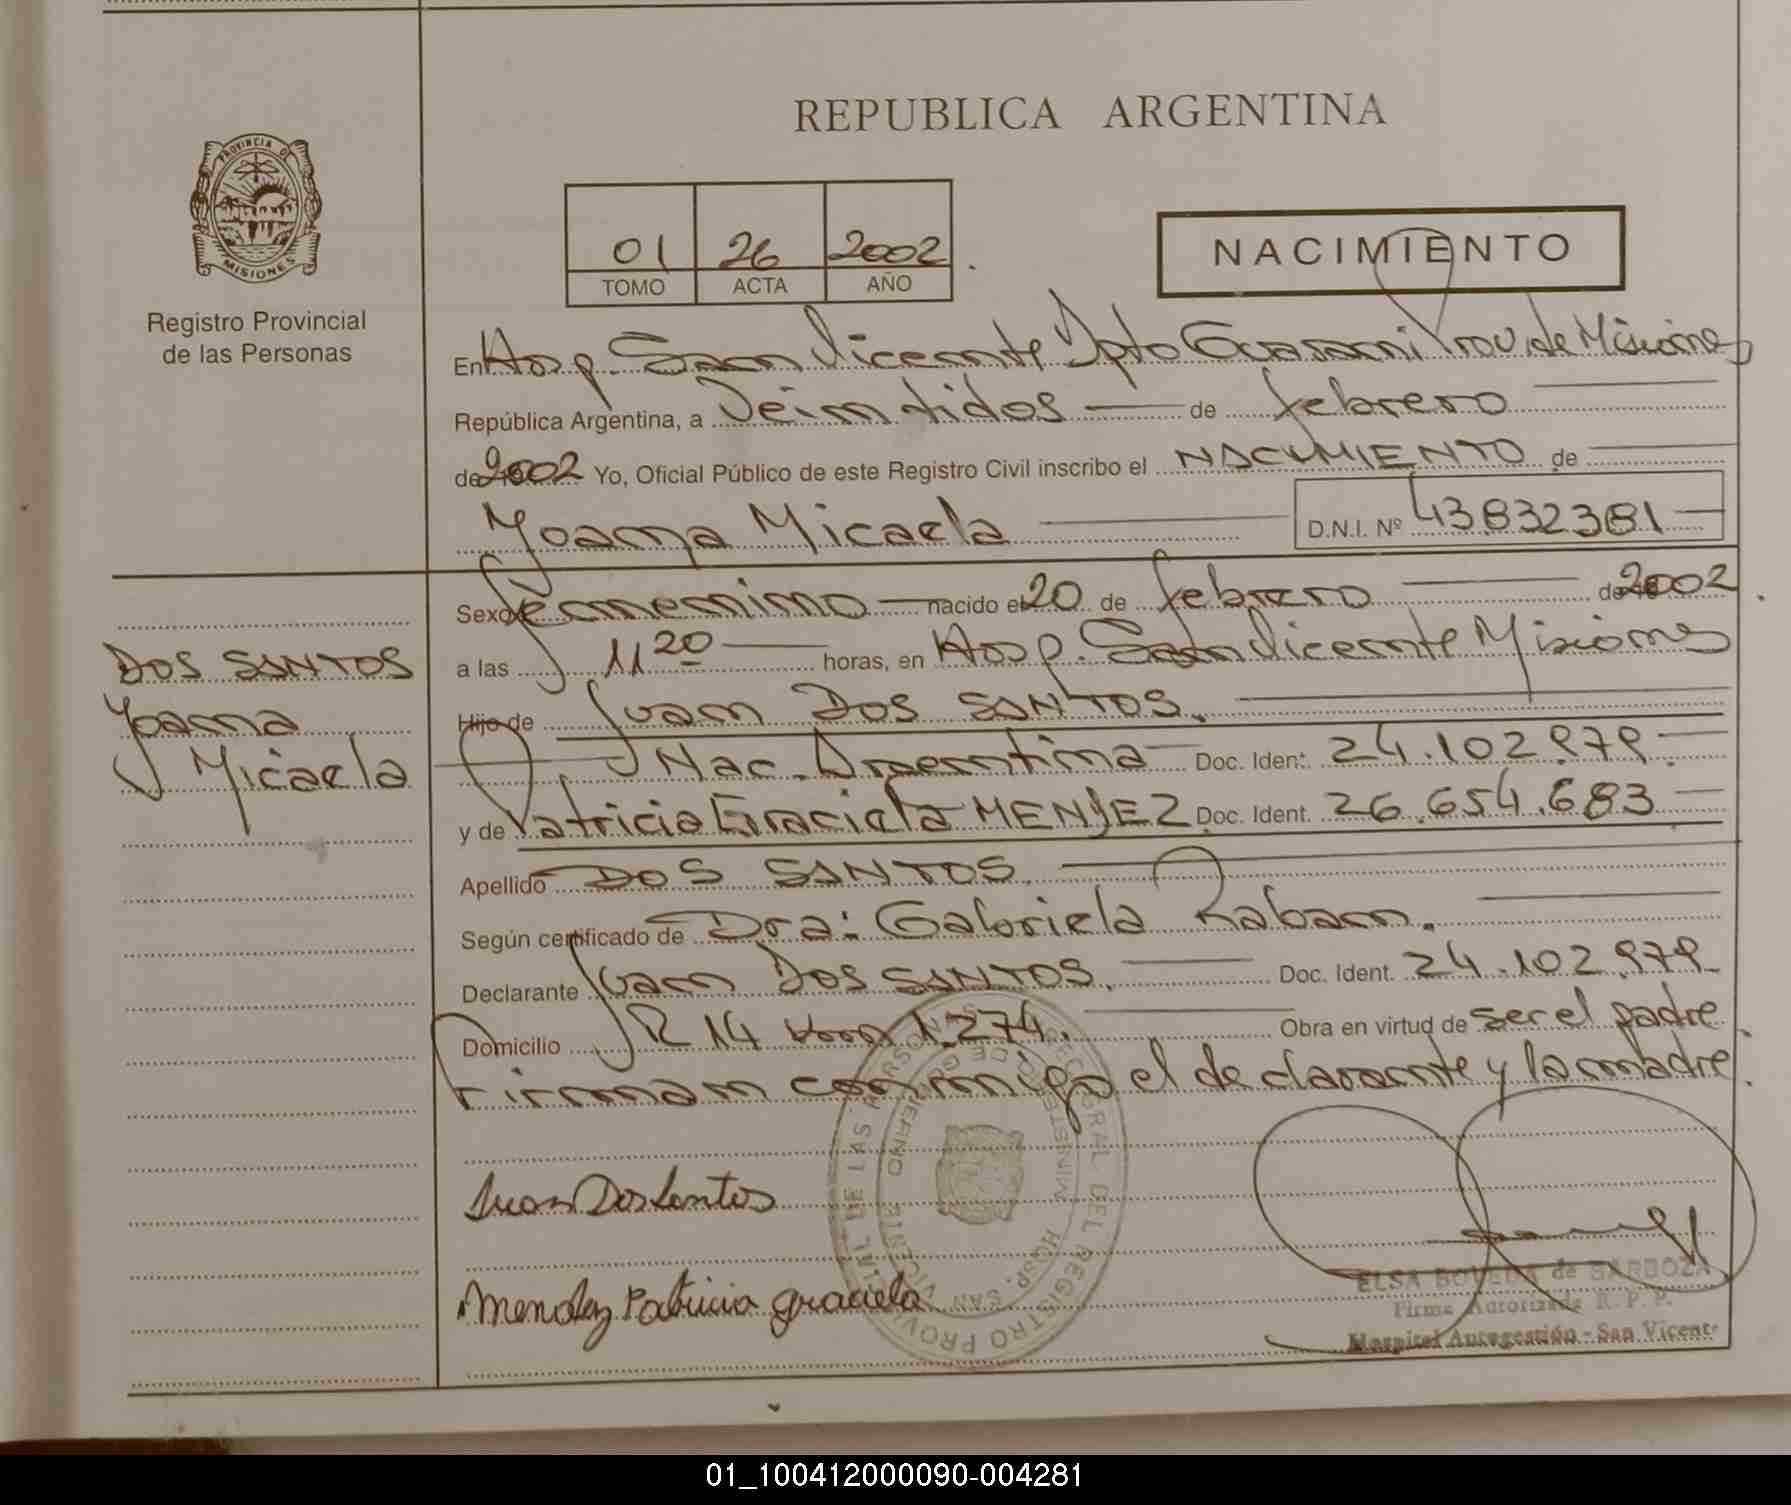 REPUBLICA ARGENTINA
PROVINCIA DE
MISIONES
Registro Provincial
de las Personas
01 26 2002
TOMO ACTA AÑO
NACIMIENTO
En Hosp. San Vicente Dpto Guarani Prov. de Misiones
República Argentina, a Veintidos de febrero
de 2002 Yo, Oficial Público de este Registro Civil inscribo el NACIMIENTO de
Yoana Micaela D.N.I. Nº 43832381
DOS SANTOS
Yoana
Micaela
Sexo femenino nacido el 20 de febrero de 2002.
a las 11 20 horas, en Hosp. San Vicente Misiones
Hijo de Juan DOS SANTOS.
Nac. Argentina Doc. Ident. 24.102.979.
y de Patricia Graciela MENDEZ Doc. Ident. 26.654.683
Apellido DOS SANTOS
Según certificado de Dra: Gabriela Raban.
Declarante Juan DOS SANTOS. Doc. Ident. 24.102.979
Domicilio R 14 1.274. Obra en virtud de ser el padre.
Firman conmigo el declarante y la madre.
Juan Dos Santos
Mendez Patricia graciela
ELSA BOVEDA de BARBOZA
Firma Autorizada R. P. P.
Hospital Autogestión - San Vicente
01_100412000090-004281